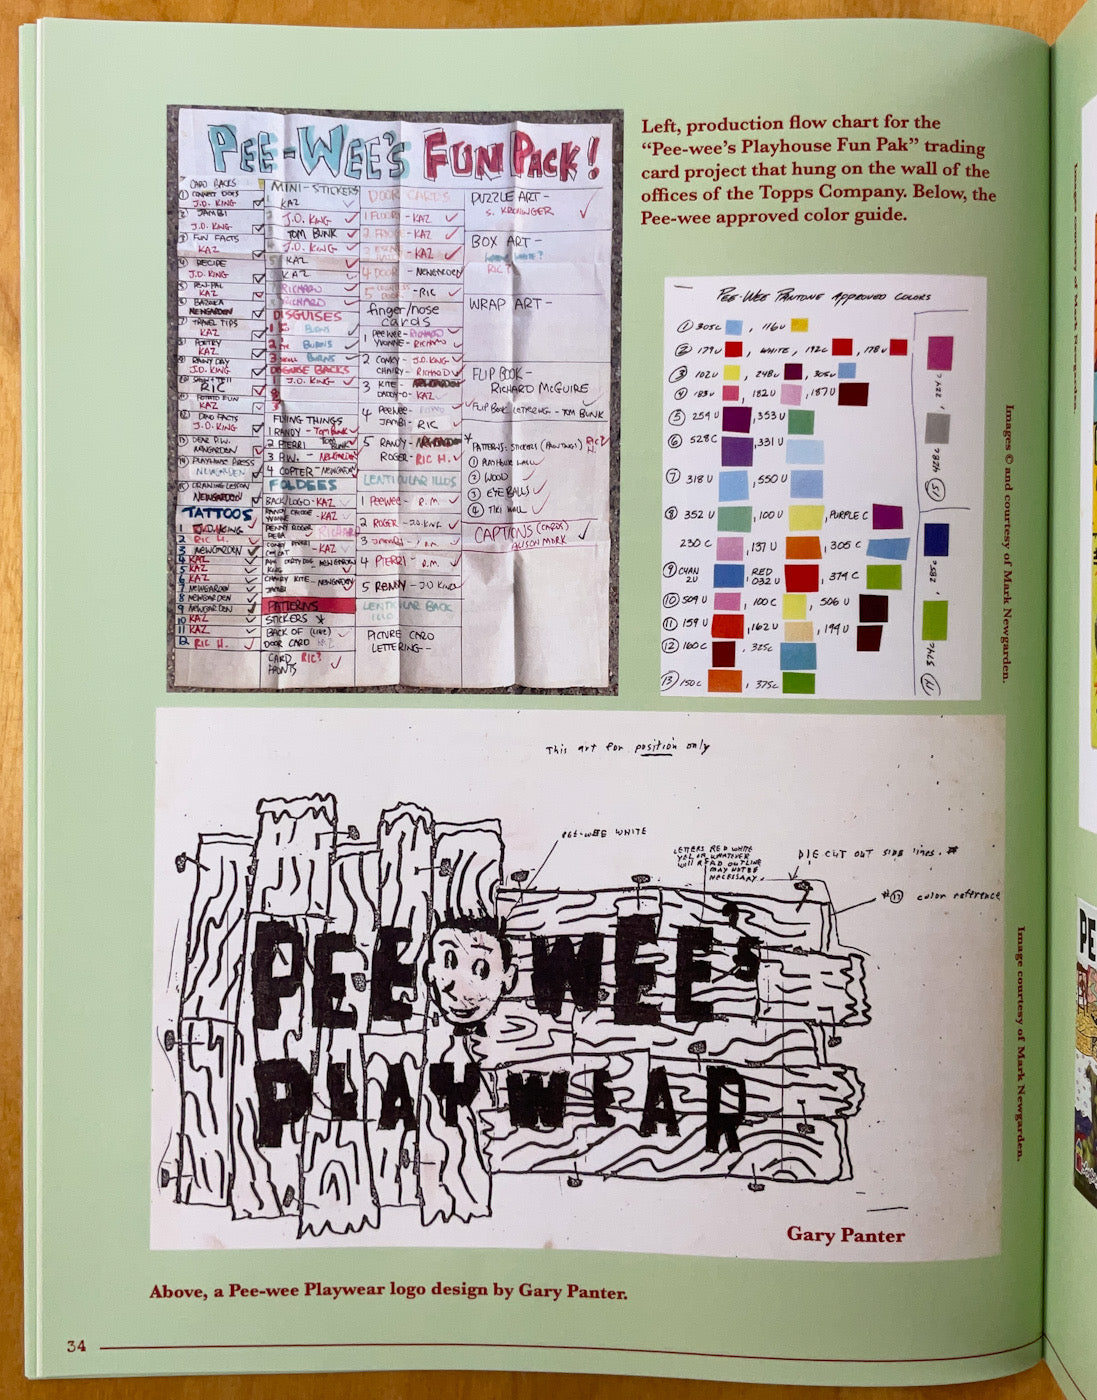 PEE-WEE'S FUN PACK!
CARD BACKS
① CONNECT DOTS
J.D. KING
2 JAMBI
J.D. KING
③ FUN FACTS
KAZ
④ RECIPE
J.D. KING
⑤ PEN-PAL
KAZ
⑥ BAZOOKA
NEWGARDEN
⑦ TRAVEL TIPS
KAZ
⑧ POETRY
KAZ
⑨ RAINY DAY
J.D. KING
RIC
POTATO FUN
KAZ
DINO FACTS
J.D. KING
DEAR P.W.
NEWGARDEN
PLAYHOUSE PRESS
NEWGARDEN
DRAWING LESSON
NEWGARDEN
TATTOOS
1 J.D. KING
2 RIC H.
3 NEWGARDEN
4 KAZ
5 KAZ
6 KAZ
7 NEWGARDEN
8 NEWGARDEN
9 NEWGARDEN
10 KAZ
11 KAZ
12 RIC H.
MINI-STICKERS
KAZ
J.D. KING
TOM BUNK
J.D. KING
KAZ
KAZ
RICHARD
RICHARD
DISGUISES
1 BURNS
2 BURNS
3 SKULL BURNS
DISGUISE BACKS
1 J.D. KING
2
3
FLYING THINGS
1 RANDY - TOM BUNK
2 PTERRI TOM BUNK
3 P.W. - NEWGARDEN
4 COPTER - NEWGARDEN
FOLDEES
BACK/LOGO - KAZ
RANDY COWBOE YVONNE - KAZ
PENNY ROGER RICHARD
KAZ
NEWGARDEN
KING
CHAIRY KITE - NEWGARDEN
JAMBI
PATTERNS
STICKERS *
BACK OF (LIVE)
DOOR CARD
CARD FRONTS RIC?
DOOR CARDS
1 FLOORY - KAZ
2 FRIDGE - KAZ
3 - KAZ
4 DOOR - NEWGARDEN
5 - RIC
finger/nose
cards
1 PEEWEE - RICHARD
YVONNE - RICHARD
2 CONKY - J.D. KING
CHAIRY - RICHARD
3 KITE - NEWGARDEN
DADDY-O - KAZ
4 PEEWEE -
JAMBI - RIC
5 RANDY - NEWGARDEN
ROGER - RIC H.
LENTICULAR ILLOS
1 PEEWEE - R.M.
2 ROGER - J.D. KING
3 JAMBI -
4 PTERRI - R.M.
5 RANDY - J.D. KING
LENTICULAR BACK
ILLO
PICTURE CARD
LETTERING -
PUZZLE ART -
S. KROENINGER
BOX ART -
WAYNE WHITE?
RIC?
WRAP ART -
FLIP BOOK -
RICHARD MCGUIRE
FLIP BOOK LETTERING - TOM BUNK
* PATTERNS: STICKERS (PAINTINGS) RIC H.
① PLAYHOUSE WALL
② WOOD
③ EYE BALLS
④ TIKI WALL
CAPTIONS (CARDS)
ALISON MARK
Left, production flow chart for the
“Pee-wee’s Playhouse Fun Pak” trading
card project that hung on the wall of the
offices of the Topps Company. Below, the
Pee-wee approved color guide.
PEE-WEE PANTONE APPROVED COLORS
① 305C , 116U
② 179U , WHITE, 192C , 178U
③ 102U , 248U , 305U
④ 183U , 182U , 187U
⑤ 259U , 353U
⑥ 528C , 331U
⑦ 318U , 550U
⑧ 352U , 100U , PURPLE C
230C , 137U , 305C
⑨ CYAN 2U , RED 032U , 379C
⑩ 509U , 100C , 506U
⑪ 159U , 162U , 194U
⑫ 160C , 325C
⑬ 150C , 375C
Images © and courtesy of Mark Newgarden.
This art for position only
PEE-WEE WHITE
LETTERS RED WHITE
YEL OR WHATEVER
WILL READ OUTLINE
MAY NOT BE
NECESSARY.
DIE CUT OUT SIDE lines. *
#⑰ color reference
PEE WEE'S
PLAY WEAR
Image courtesy of Mark Newgarden.
Gary Panter
Above, a Pee-wee Playwear logo design by Gary Panter.
34
PE